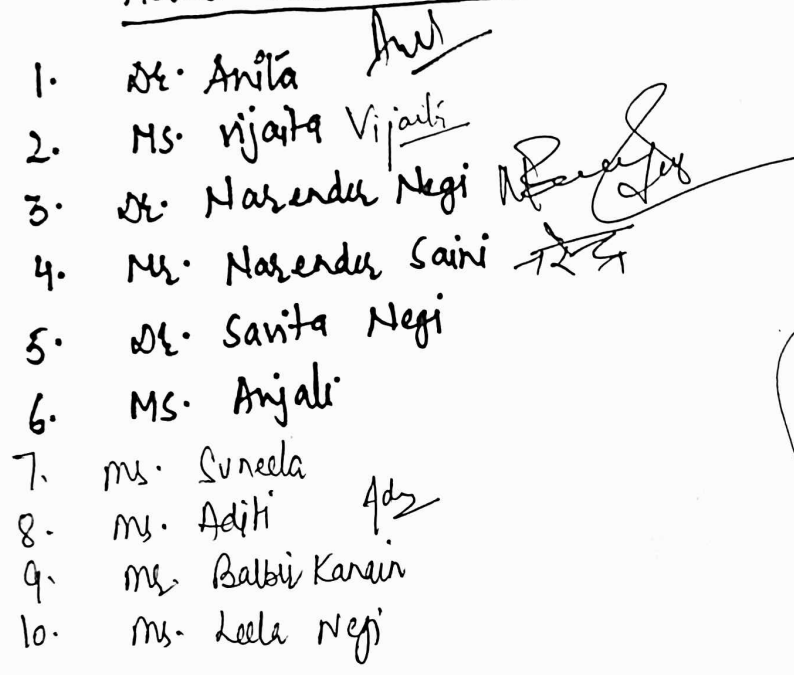 1. Dr. Anita
2. Ms. Vijaita Vijaiti
3. Dr. Narender Negi
4. Mr. Narender Saini
5. Dr. Savita Negi
6. Ms. Anjali
7. Ms. Suneela
8. Ms. Aditi
9. Mr. Balbir
10. Ms. Leela Negi